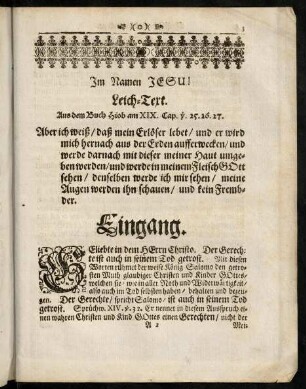 1
Im Namen JESU!
Leich-Text.
Aus dem Buch Hiob am XIX. Cap. ỹ. 25. 26. 27.
Aber ich weiß/ daß mein Erlöser lebet/ und er wird
mich hernach aus der Erden aufferwecken/ und
werde darnach mit dieser meiner Haut umge-
ben werden/ und werde in meinem Fleisch GOtt
sehen/ denselben werde ich mir sehen/ meine
Augen werden ihn schauen/ und kein Fremb-
der.
Eingang.
GEliebte in dem HErrn Christo. Der Gerech-
te ist auch in seinem Tod getrost. Mit diesen
Worten rühmet der weise König Salomo den getro-
sten Muth glaubiger Christen und Kinder GOttes/
welchen sie/ wie in aller Noth und Widerwärtigkeit/
also auch im Tod selbsten haben/ behalten und bezeu-
gen. Der Gerechte/ spricht Salomo/ ist auch in seinem Tod
getrost. Sprüchw. XIV. ỹ. 32. Er nennet in diesem Ausspruch ei-
nen wahren Christen und Kind GOttes einen Gerechten/ nicht der
A 2
Mei-